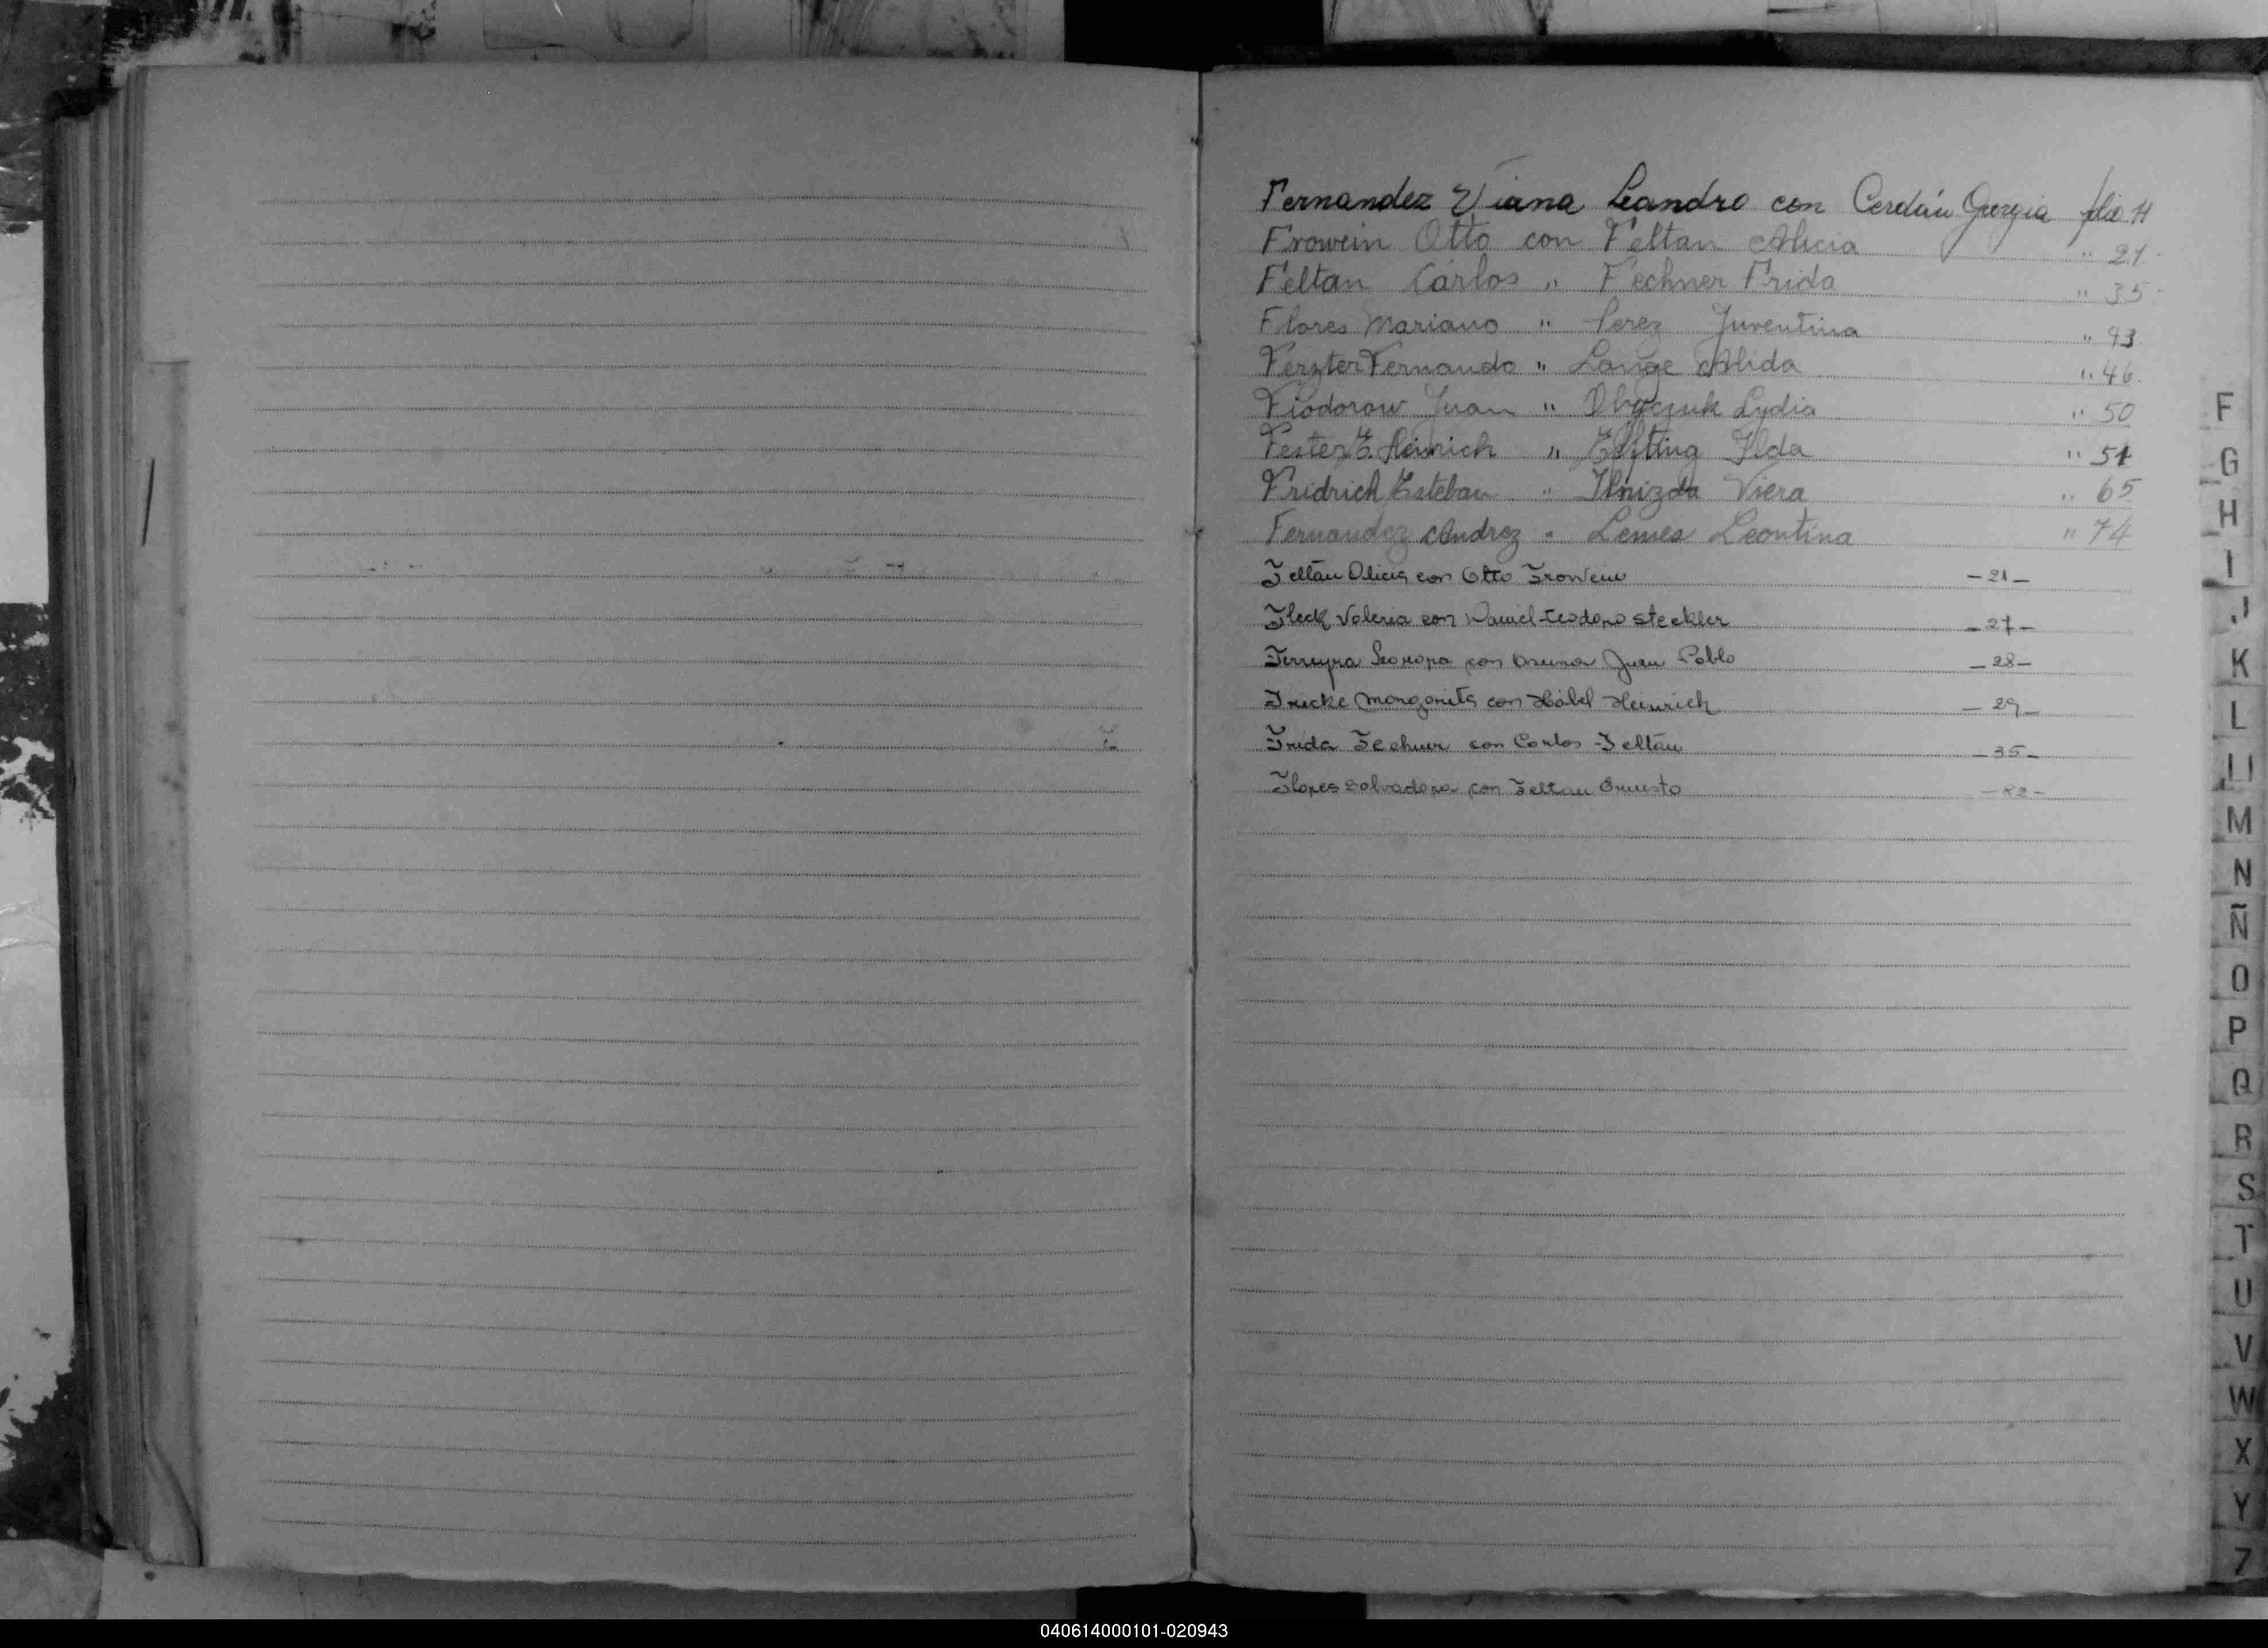 Fernandez Viana Leandro con Cerdán Giorgia folio 11
Frowein Otto con Feltan Alicia " 21
Feltan Cárlos " Fechner Frida " 35
Flores Mariano " Perez Juventina " 43
Ferzter Fernando " Lange Alida " 46
Fiodorow Juan " Lydia " 50
Fester E. Heinrich " Elfting Ilda " 51
Fridrich Esteban " Viera " 65
Fernandez Andrez " Lemes Leontina " 74
Feltán Alicia con Otto Frowein - 21 -
Fleck Valeria con Daniel Teodoro Steckler - 27 -
Ferreyra Leonora con Juan Pablo - 28 -
Fricke Margarita con Häbel Heinrich - 29 -
Frida Fechner con Carlos Feltán - 35 -
Flores Salvadora con Feltan Ernesto - 82 -
F
G
H
I
J
K
L
Ll
M
N
Ñ
O
P
Q
R
S
T
U
V
W
X
Y
Z
040614000101-020943